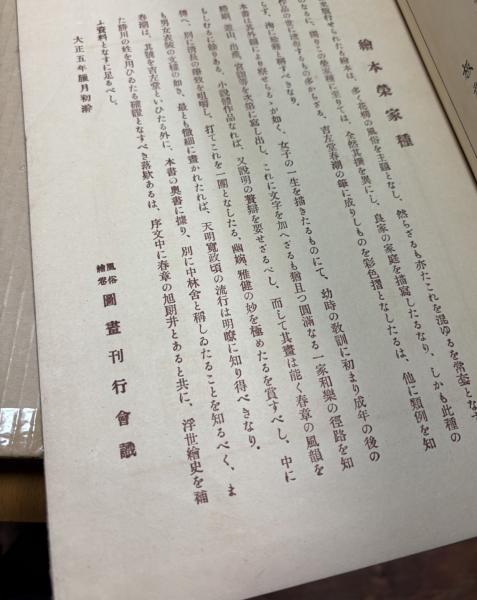 繪本榮家種
行せられたる繪本は、多く花柳の風俗を主題となし、然らざるも亦たこれを混ゆるを常套となす
のなるに、獨りこの榮家種に至りては、全然其撰を異にし、良家の家庭を描寫したるなり、しかも此種の
作品の世に流布するもの多からざる、吉左堂春潮の筆に成りしものを彩色摺となしたるは、他に類例を知
らず、洵に珍籍と稱すべきなり。
本書は其外題により察せらるゝが如く、女子の一生を描きたるものにて、幼時の敎訓に初まり成年の後の
婚姻、出產、宮詣等を次第に寫し出し、これに文字を加へざるも猶且つ圓滿なる一家和樂の徑路を知
もしむるに餘りある、小說體作品なれば、又說明の贅辯を要せざるべし、而して其畫は能く春章の風韻を
傳へ、別に淸長の筆致を咀嚼し、打てこれを一團となしたる、幽婉雅健の妙を極めたるを賞すべし、中に
も男女衣裝の文樣の如き、最とも微細に畫かれたれば、天明寬政頃の流行は明瞭に知り得べきなり。
春潮は、其號を吉左堂といひたる外に、本書の奧書に據り、別に中林舍と稱しゐたることを知るべく、ま
た勝川の姓を用ひゐたる確證となすべき落欵あるは、序文中に春章の旭朗井とあると共に、浮世繪史を補
ふ資料となすに足るべし。
大正五年臘月初澣
風俗繪卷圖畫刊行會識